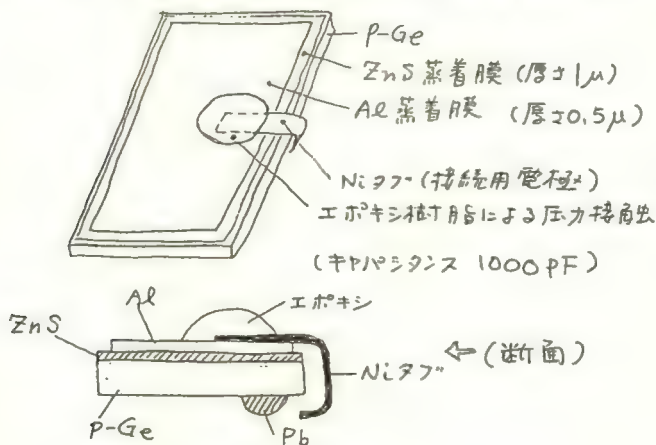 P-Ge
ZnS蒸着膜(厚さ1μ)
Al蒸着膜 (厚さ0.5μ)
Niタブ(接続用電極)
エポキシ樹脂による圧力接触
(キャパシタンス 1000PF)
エポキシ
Al
ZnS
⇐(断面)
Niタブ
P-Ge
Pb